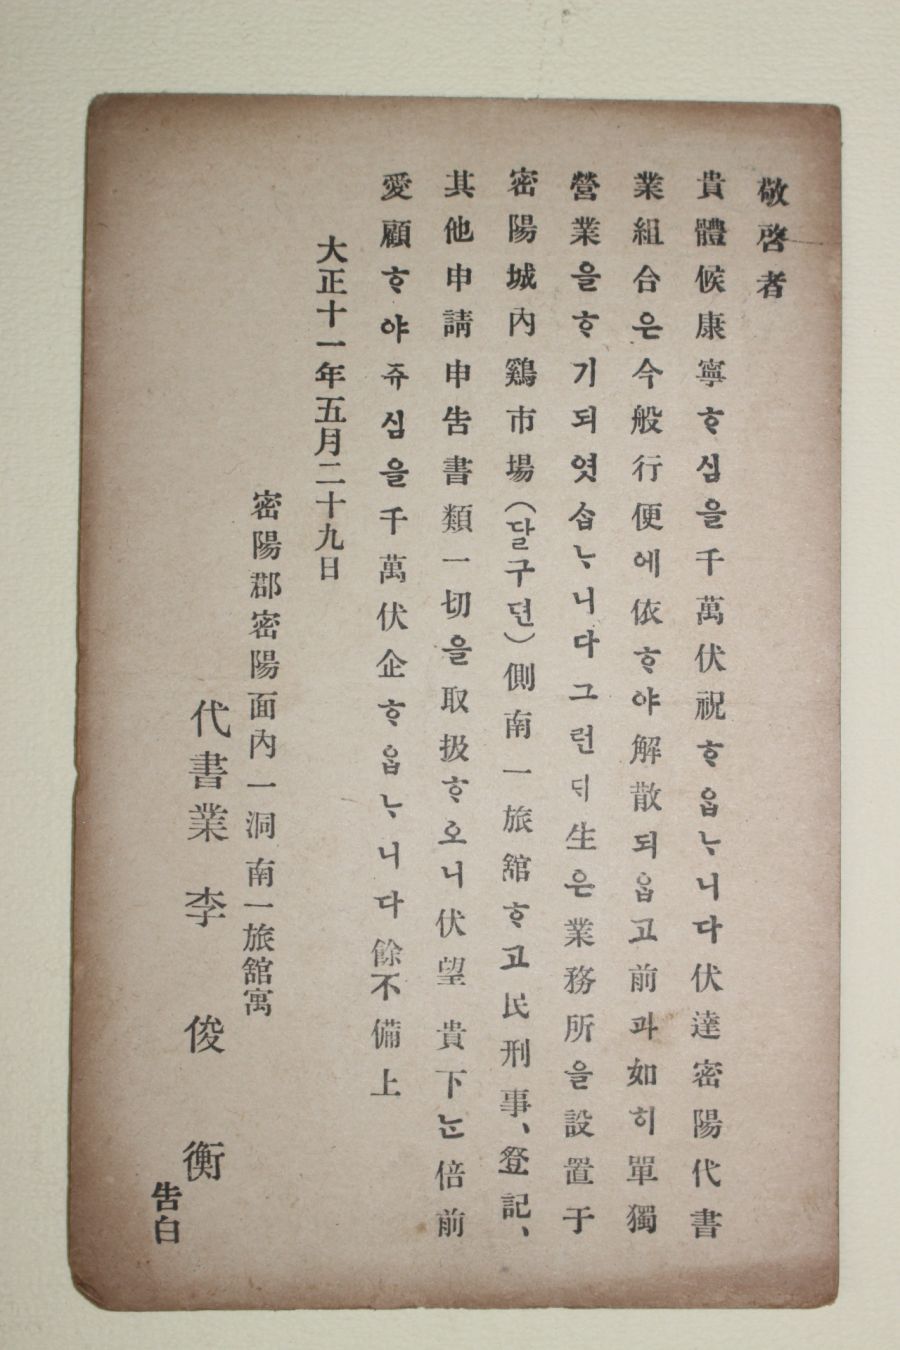 敬啓者
貴體候康寧ᄒᆞ심을千萬伏祝ᄒᆞ읍ᄂᆞ니다伏達密陽代書
業組合은今般行便에依ᄒᆞ야解散되읍고前과如히單獨
營業을ᄒᆞ기되엿습ᄂᆞ니다그런ᄃᆡ生은業務所을設置于
密陽城內鷄市場(달구뎐)側南一旅舘ᄒᆞ고民刑事、登記、
其他申請申告書類一切을取扱ᄒᆞ오니伏望 貴下ᄂᆞᆫ倍前
愛顧ᄒᆞ야쥬심을千萬伏企ᄒᆞ읍ᄂᆞ니다餘不備上
大正十一年五月二十九日
密陽郡密陽面內一洞南一旅舘寓
代書業 李俊衡
告白